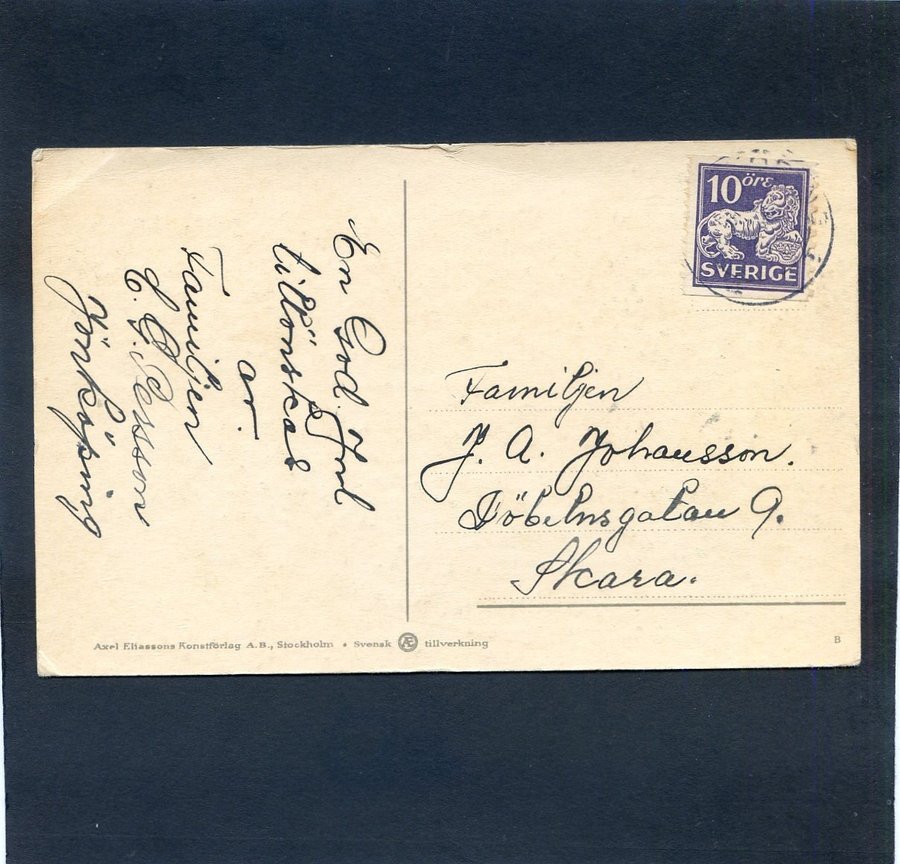 En God Jul
tillönskas
av.
Familjen
Jönköping
10 öre
SVERIGE
Familjen
J. A. Johansson.
Döbelnsgatan 9.
Skara.
Axel Eliassons Konstförlag A.B., Stockholm • Svensk Æ tillverkning
B